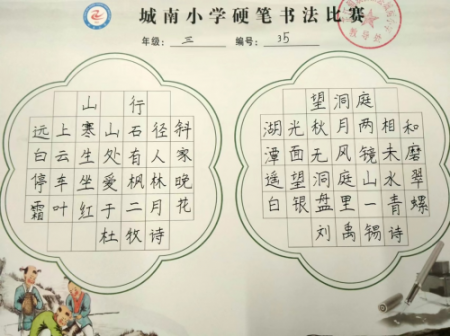 城南小学硬笔书法比赛
年级：三 编号：35
山行
远上寒山石径斜
白云生处有人家
停车坐爱枫林晚
霜叶红于二月花
杜牧诗
望洞庭
湖光秋月两相和
潭面无风镜未磨
遥望洞庭山水翠
白银盘里一青螺
刘禹锡诗